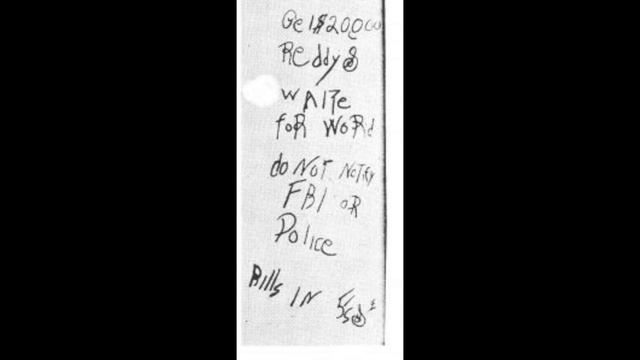 Get $200000
Reddy &
WAITe
foR WoRd
do NoT NoTify
FBI oR
Police
Bills IN